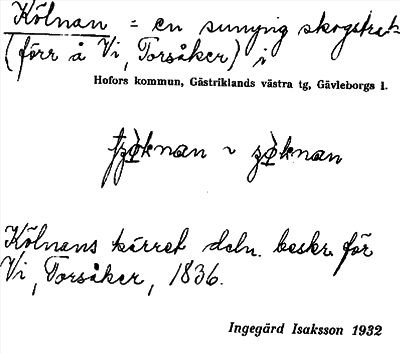 Kölnan = en sumpig skogstrakt
(förr å Vi, Torsåker) i
Hofors kommun, Gästriklands västra tg, Gävleborgs l.
~
Kölnans kärret deln. beskr. för
Vi, Torsåker, 1836.
Ingegärd Isaksson 1932